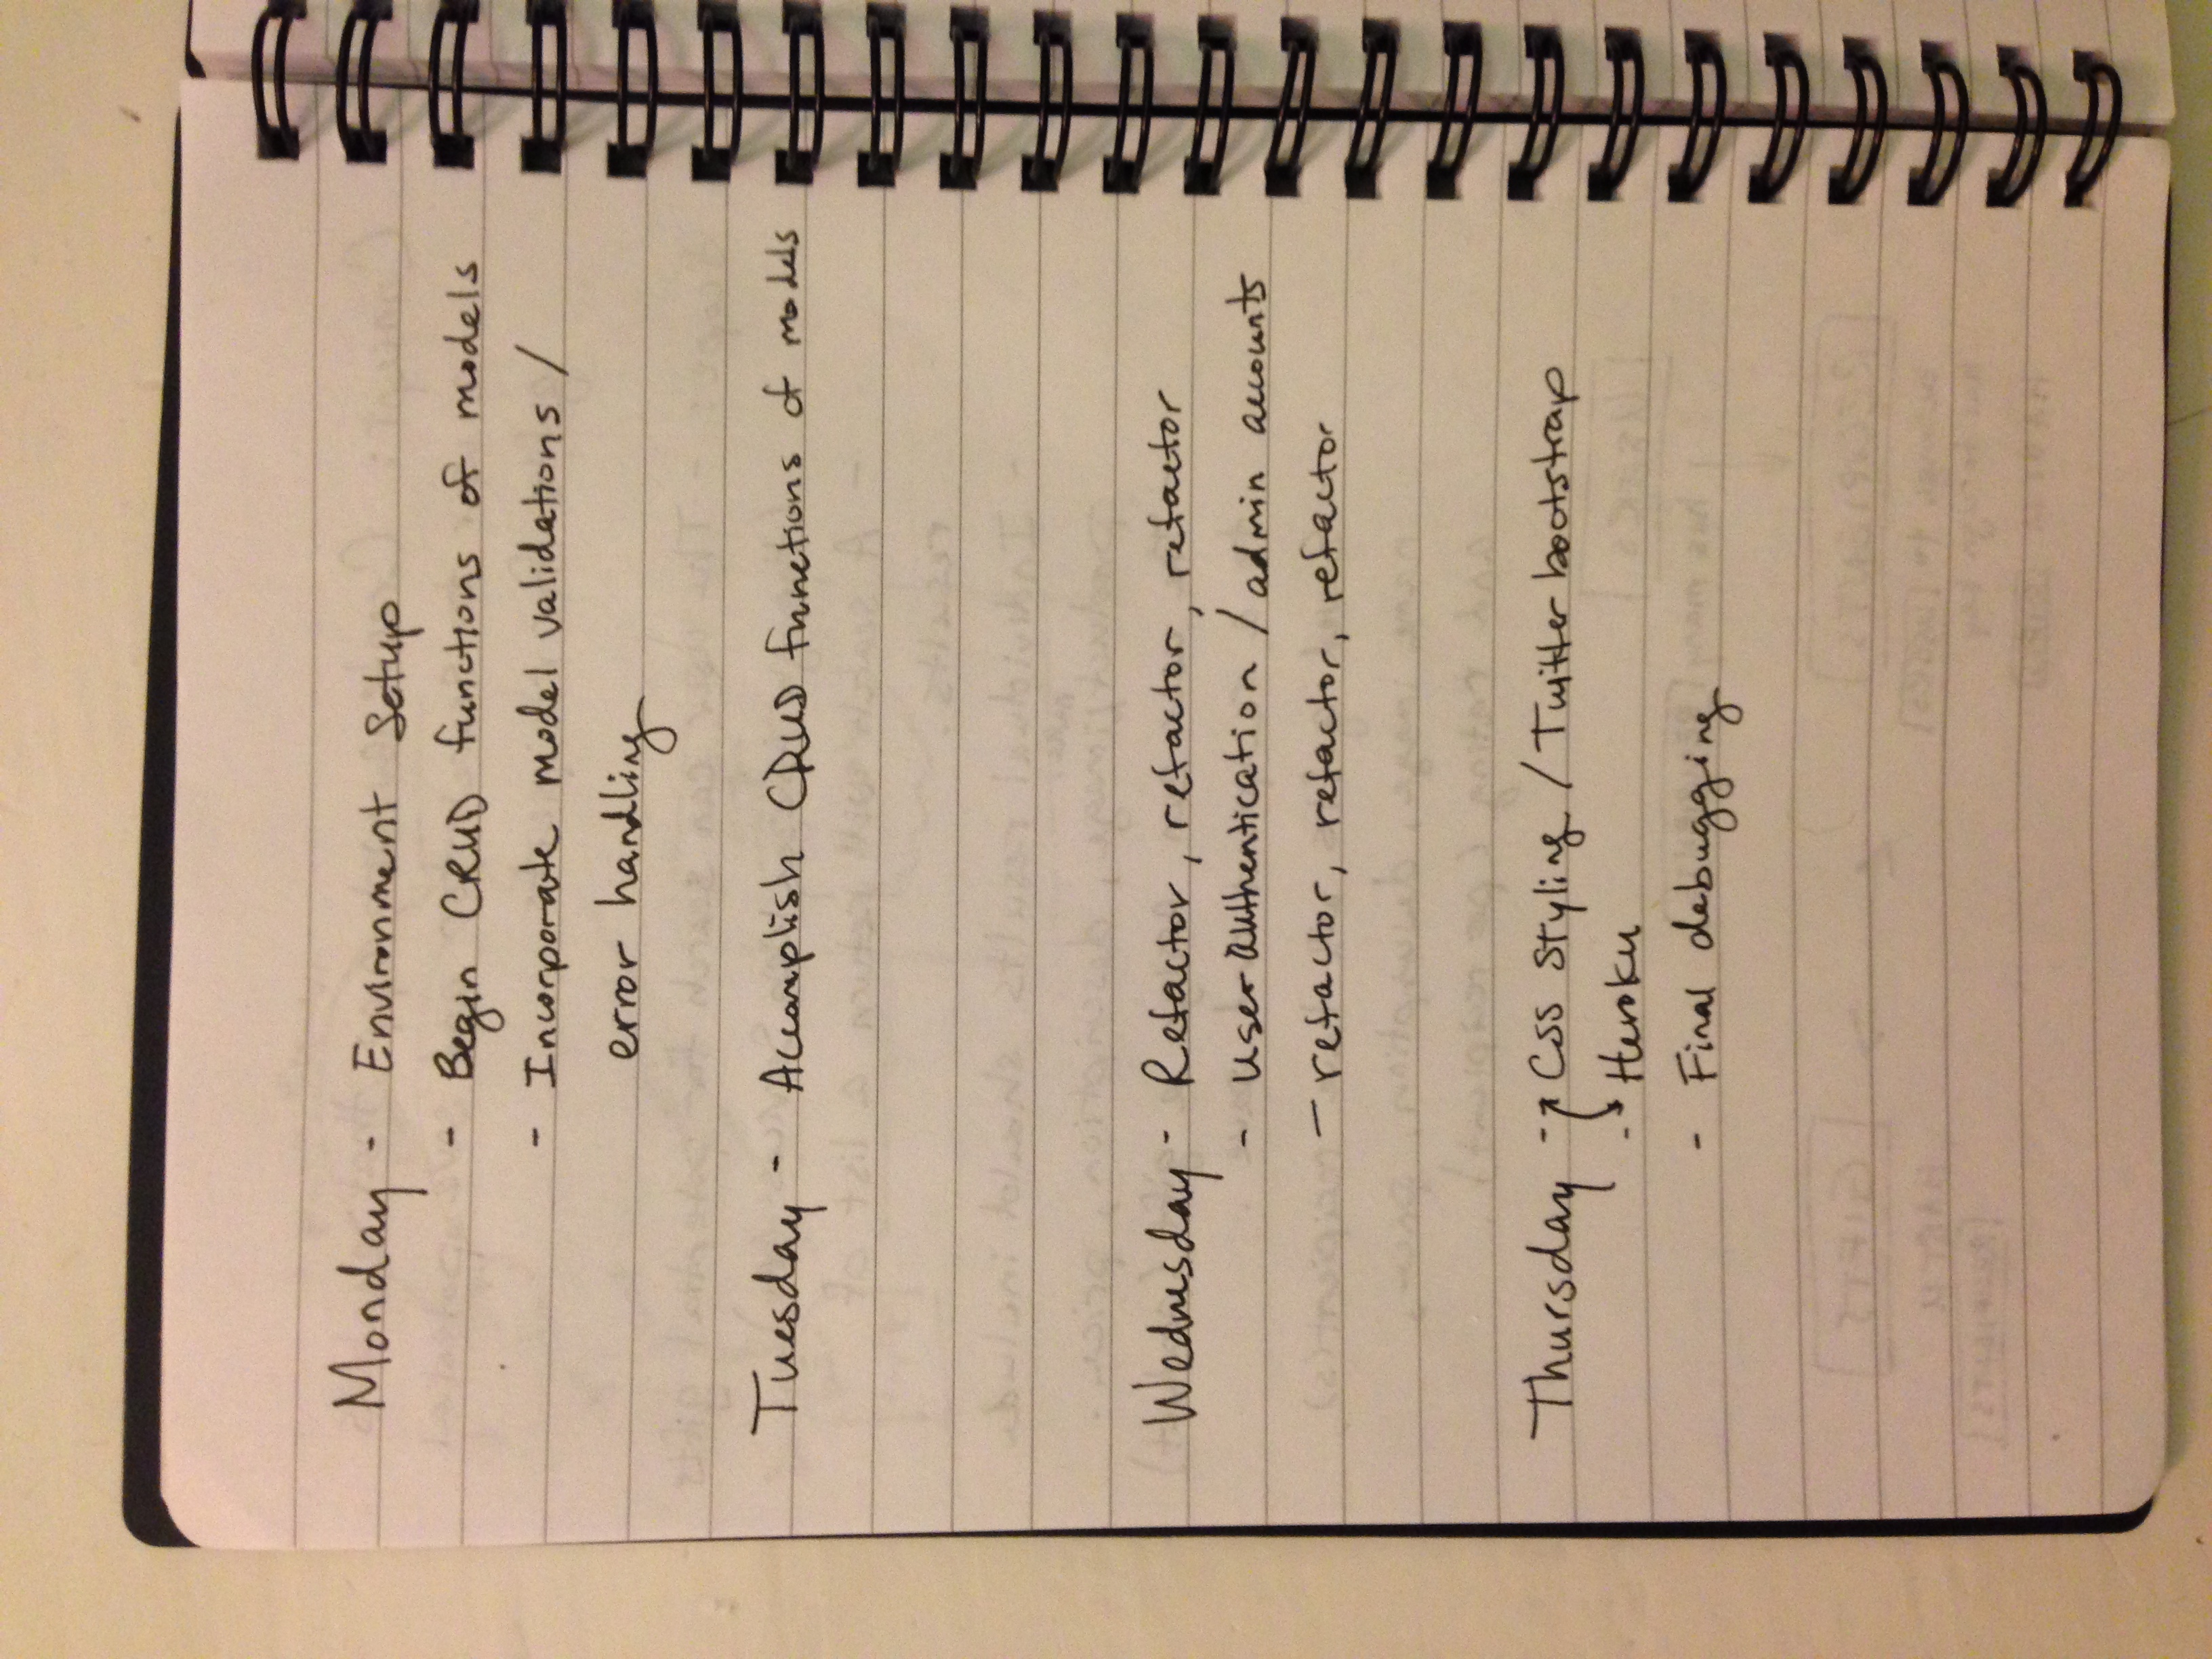 Monday - Environment Setup
- Begin CRUD functions of models
- Incorporate model validations /
error handling
Tuesday - Accomplish CRUD functions of models
Wednesday - Refactor, refactor, refactor
- User authentication / admin accounts
- refactor, refactor, refactor
Thursday - CSS Styling / Twitter bootstrap
- Heroku
- Final debugging